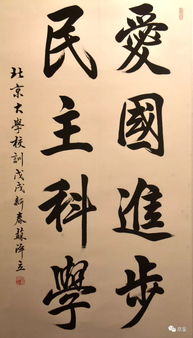 愛國進步
民主科學
北京大學校訓戊戌新春蘇澤立